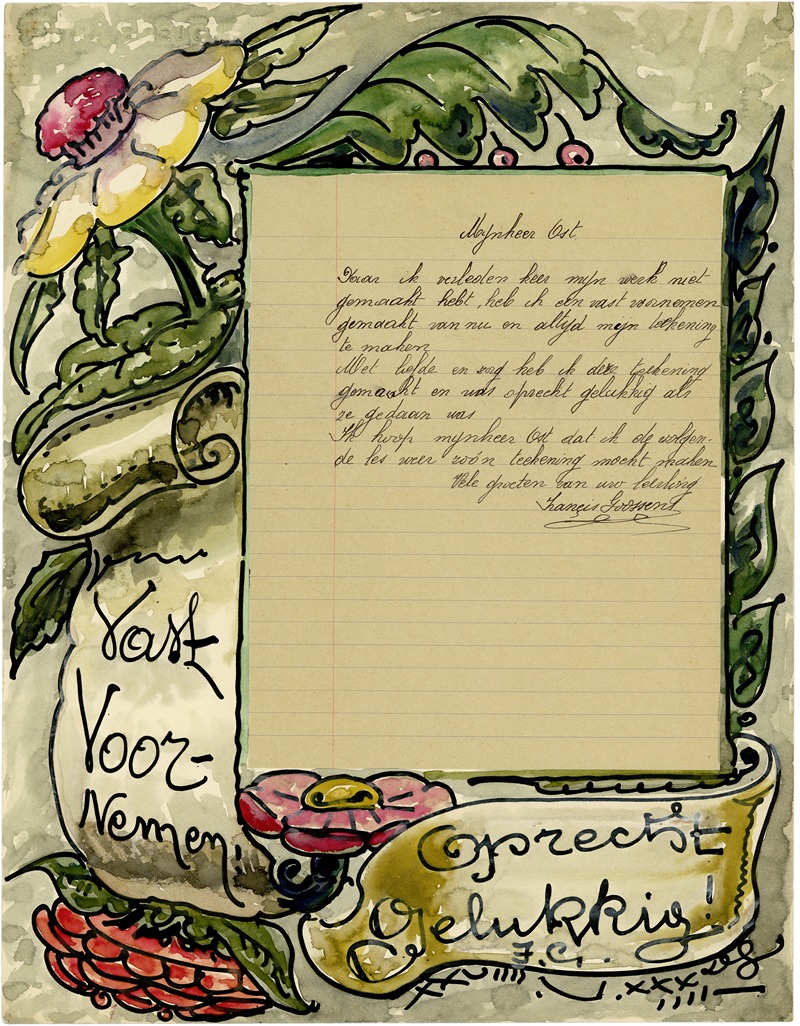 Mynheer Ost.
Daar ik verleden keer mijn werk niet
gemaakt hebt, heb ik een vast voornemen
gemaakt van nu en altijd mijn teekening
te maken
Met liefde en zorg heb ik deze teekening
gemaakt en was oprecht gelukkig als
ze gedaan was
Ik hoop mynheer Ost dat ik de volgen-
de les weer zoón teekening mocht maken
Vele groeten van uw leerling
Francis Goossens
Vast
Voor-
Nemen!
Oprecht
Gelukkig!